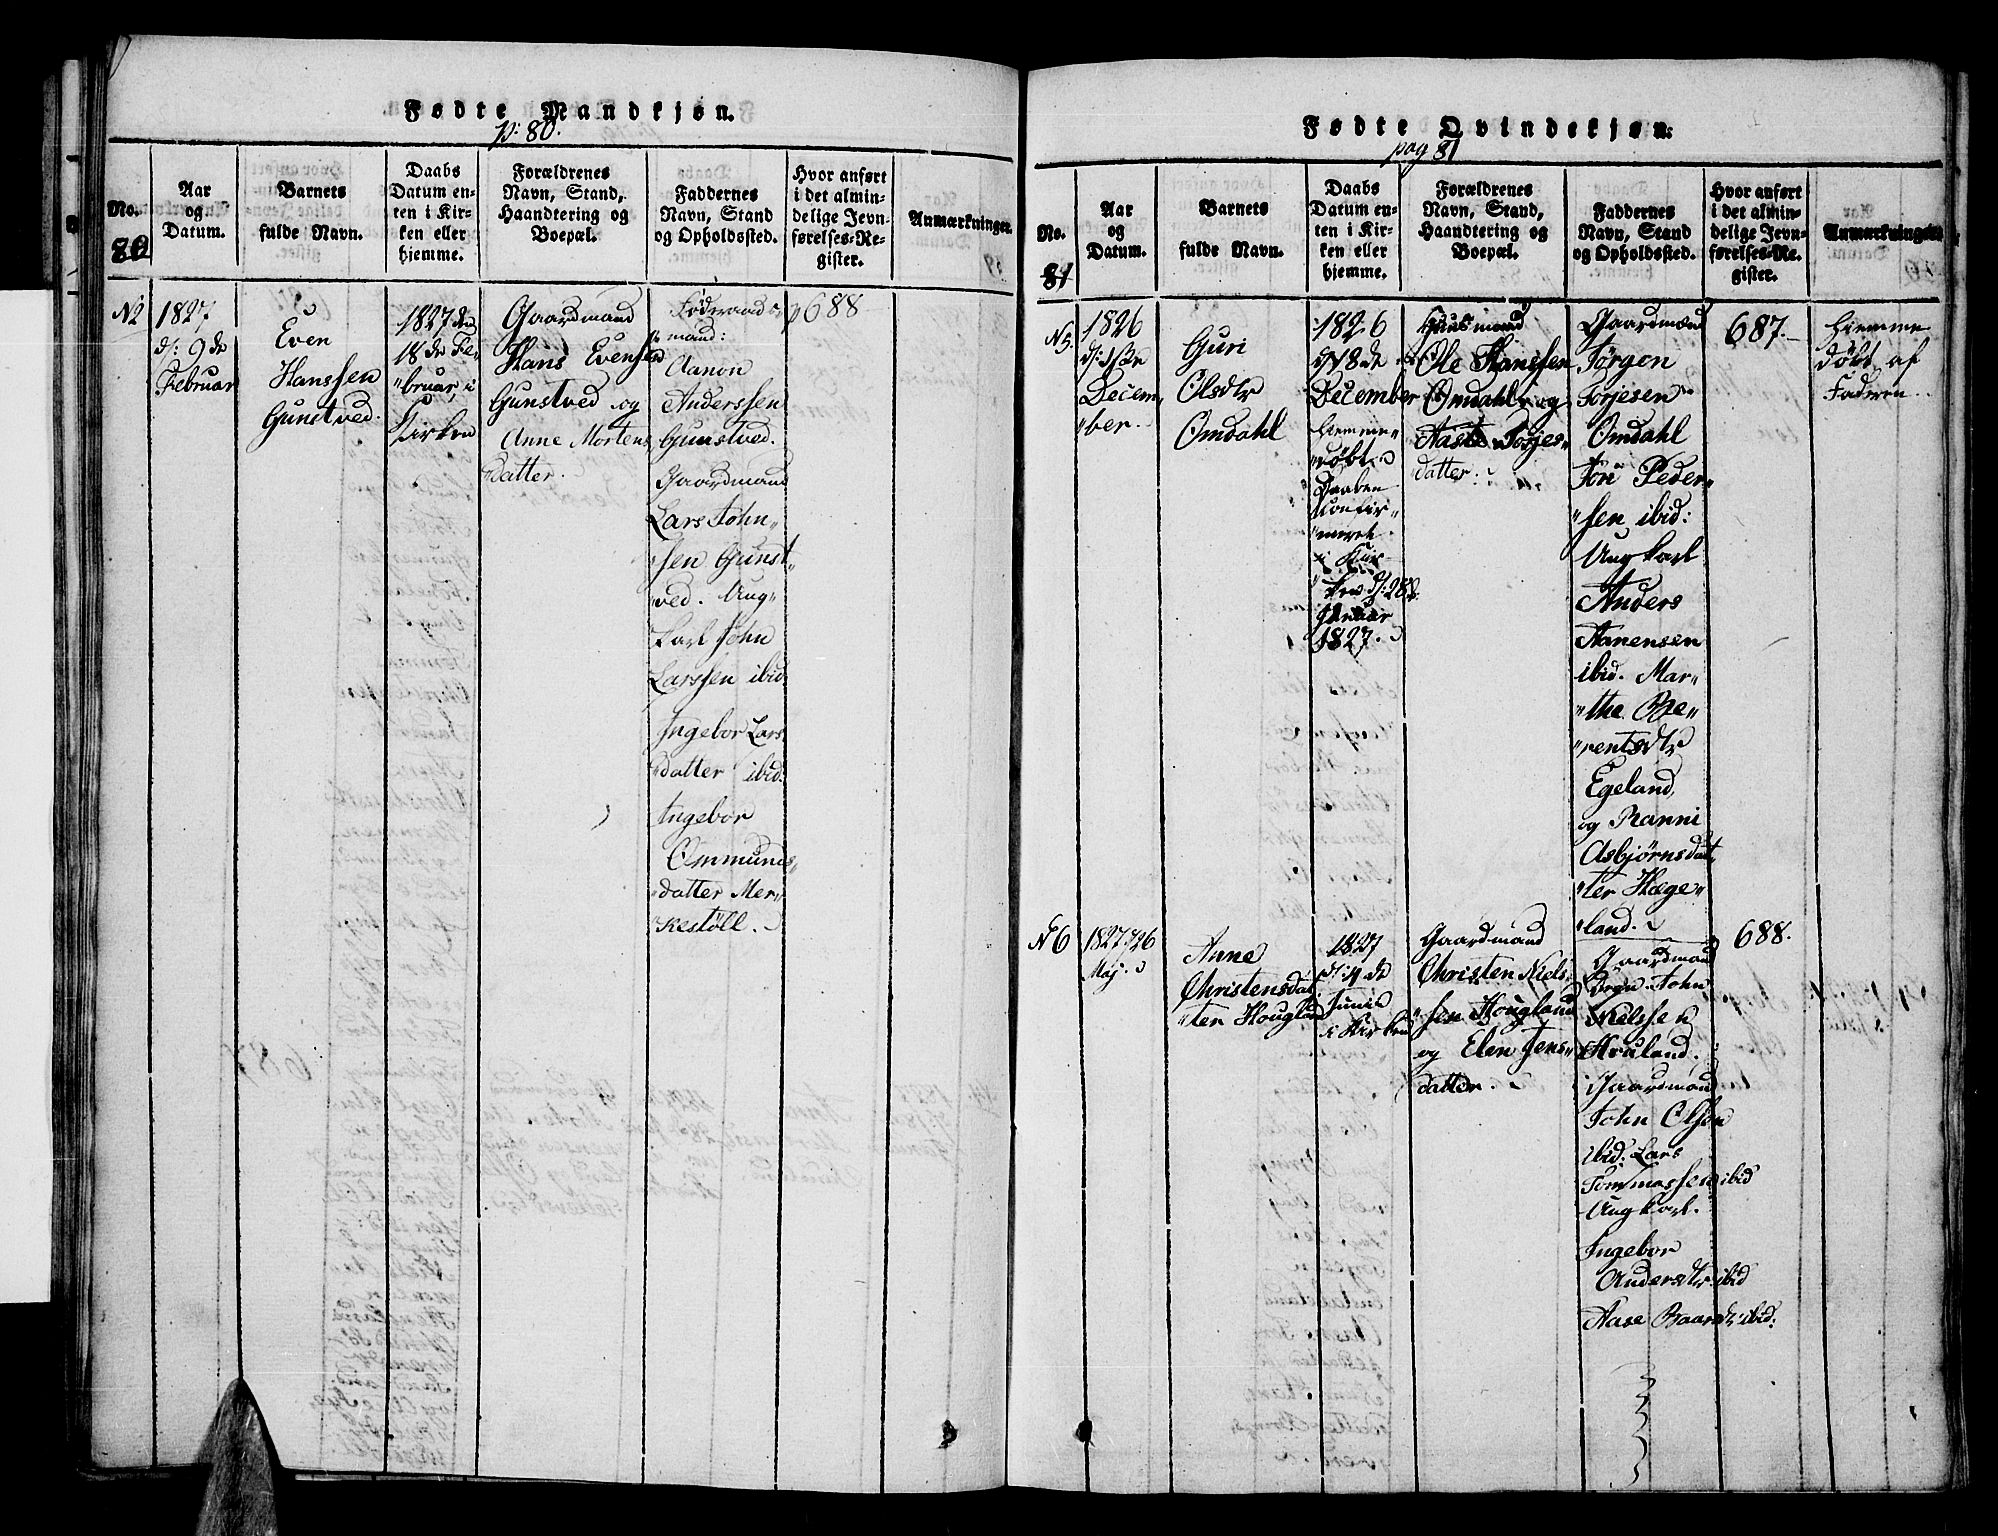 Fødte Mandkjøn.
p: 80.
No.
80
Aar
og
Datum.
Barnets
fulde Navn.
Daabs
Datum en-
ten i Kir-
ken eller
hjemme.
Forældrenes
Navn, Stand,
Haandtering og
Boepæl.
Faddernes
Navn, Stand
og Opholdssted.
Hvor anført
i det almin-
delige Jevn-
førelses-Re-
gister.
Anmærkninger.
N2
1827
d: 9de
Februar
Even
Hanssen
Gunstved.
1827 den
18de Fe-
"bruar, i
Kirken
Gaardmand
Hans Evensen
Gunstved og
Anne Mortens
"datter.
Føderaads
mand:
Aanon
Anderssen
Gunstved.
Gaardmand
Lars John"
"sen Gunst"
"ved. Ung"
karl John
Larssen ibid.
Ingebor Lars
"datter ibid:
Ingebor
Ommunds"
"datter Mer"
"kestöll.
p 688
Fødte Qvindekjøn.
pag 81
No.
81
Aar
og
Datum.
Barnets
fulde Navn.
Daabs
Datum en-
ten i Kir-
ken eller
hjemme.
Forældrenes
Navn, Stand,
Haandtering og
Boepæl.
Faddernes
Navn, Stand
og Opholdssted.
Hvor anført
i det almin-
delige Jevn-
førelses-Re-
gister.
Anmærkninger.
N5.
1826
d: 1ste
Decem"
"ber.
Guri
Olsdtr
Omdahl
1826
8de
December
hiemme"
"døbt.
Daaben
Confir"
"meret
i Kir"
"ken d: 28de
Januar
1827.
Huusmand
Ole Hanssen
Omdahl og
Aaste Torjes"
datter.
Gaardmænd
Jörgen
Torjesen
Omdahl
Tore Peder"
"sen ibid:
Ungkarl
Anders
Aanensen
ibid. Mar"
"the Be"
"rentsdtr
Egeland,
og Ranni
Asbjørnsdat"
"ter Hæge"
"land.
687.
Hiemme
døbt af
Faderen.
N6
1827 d: 26
Maj.
Anne
Christensdat
"ter Hougland
1827
d: de
Junii
i Kirken
Gaardmand
Christen Niels"
"sen Hougland
og Elen Jens"
datter.
Gaardmænd
John
Nielssen
Gaardmand
John Olsen
ibid: Lars
Tommassen ibid
Ungkarl.
Ingebor
Andersdtr ibid
Aase Baardsdtr ibid:
688.